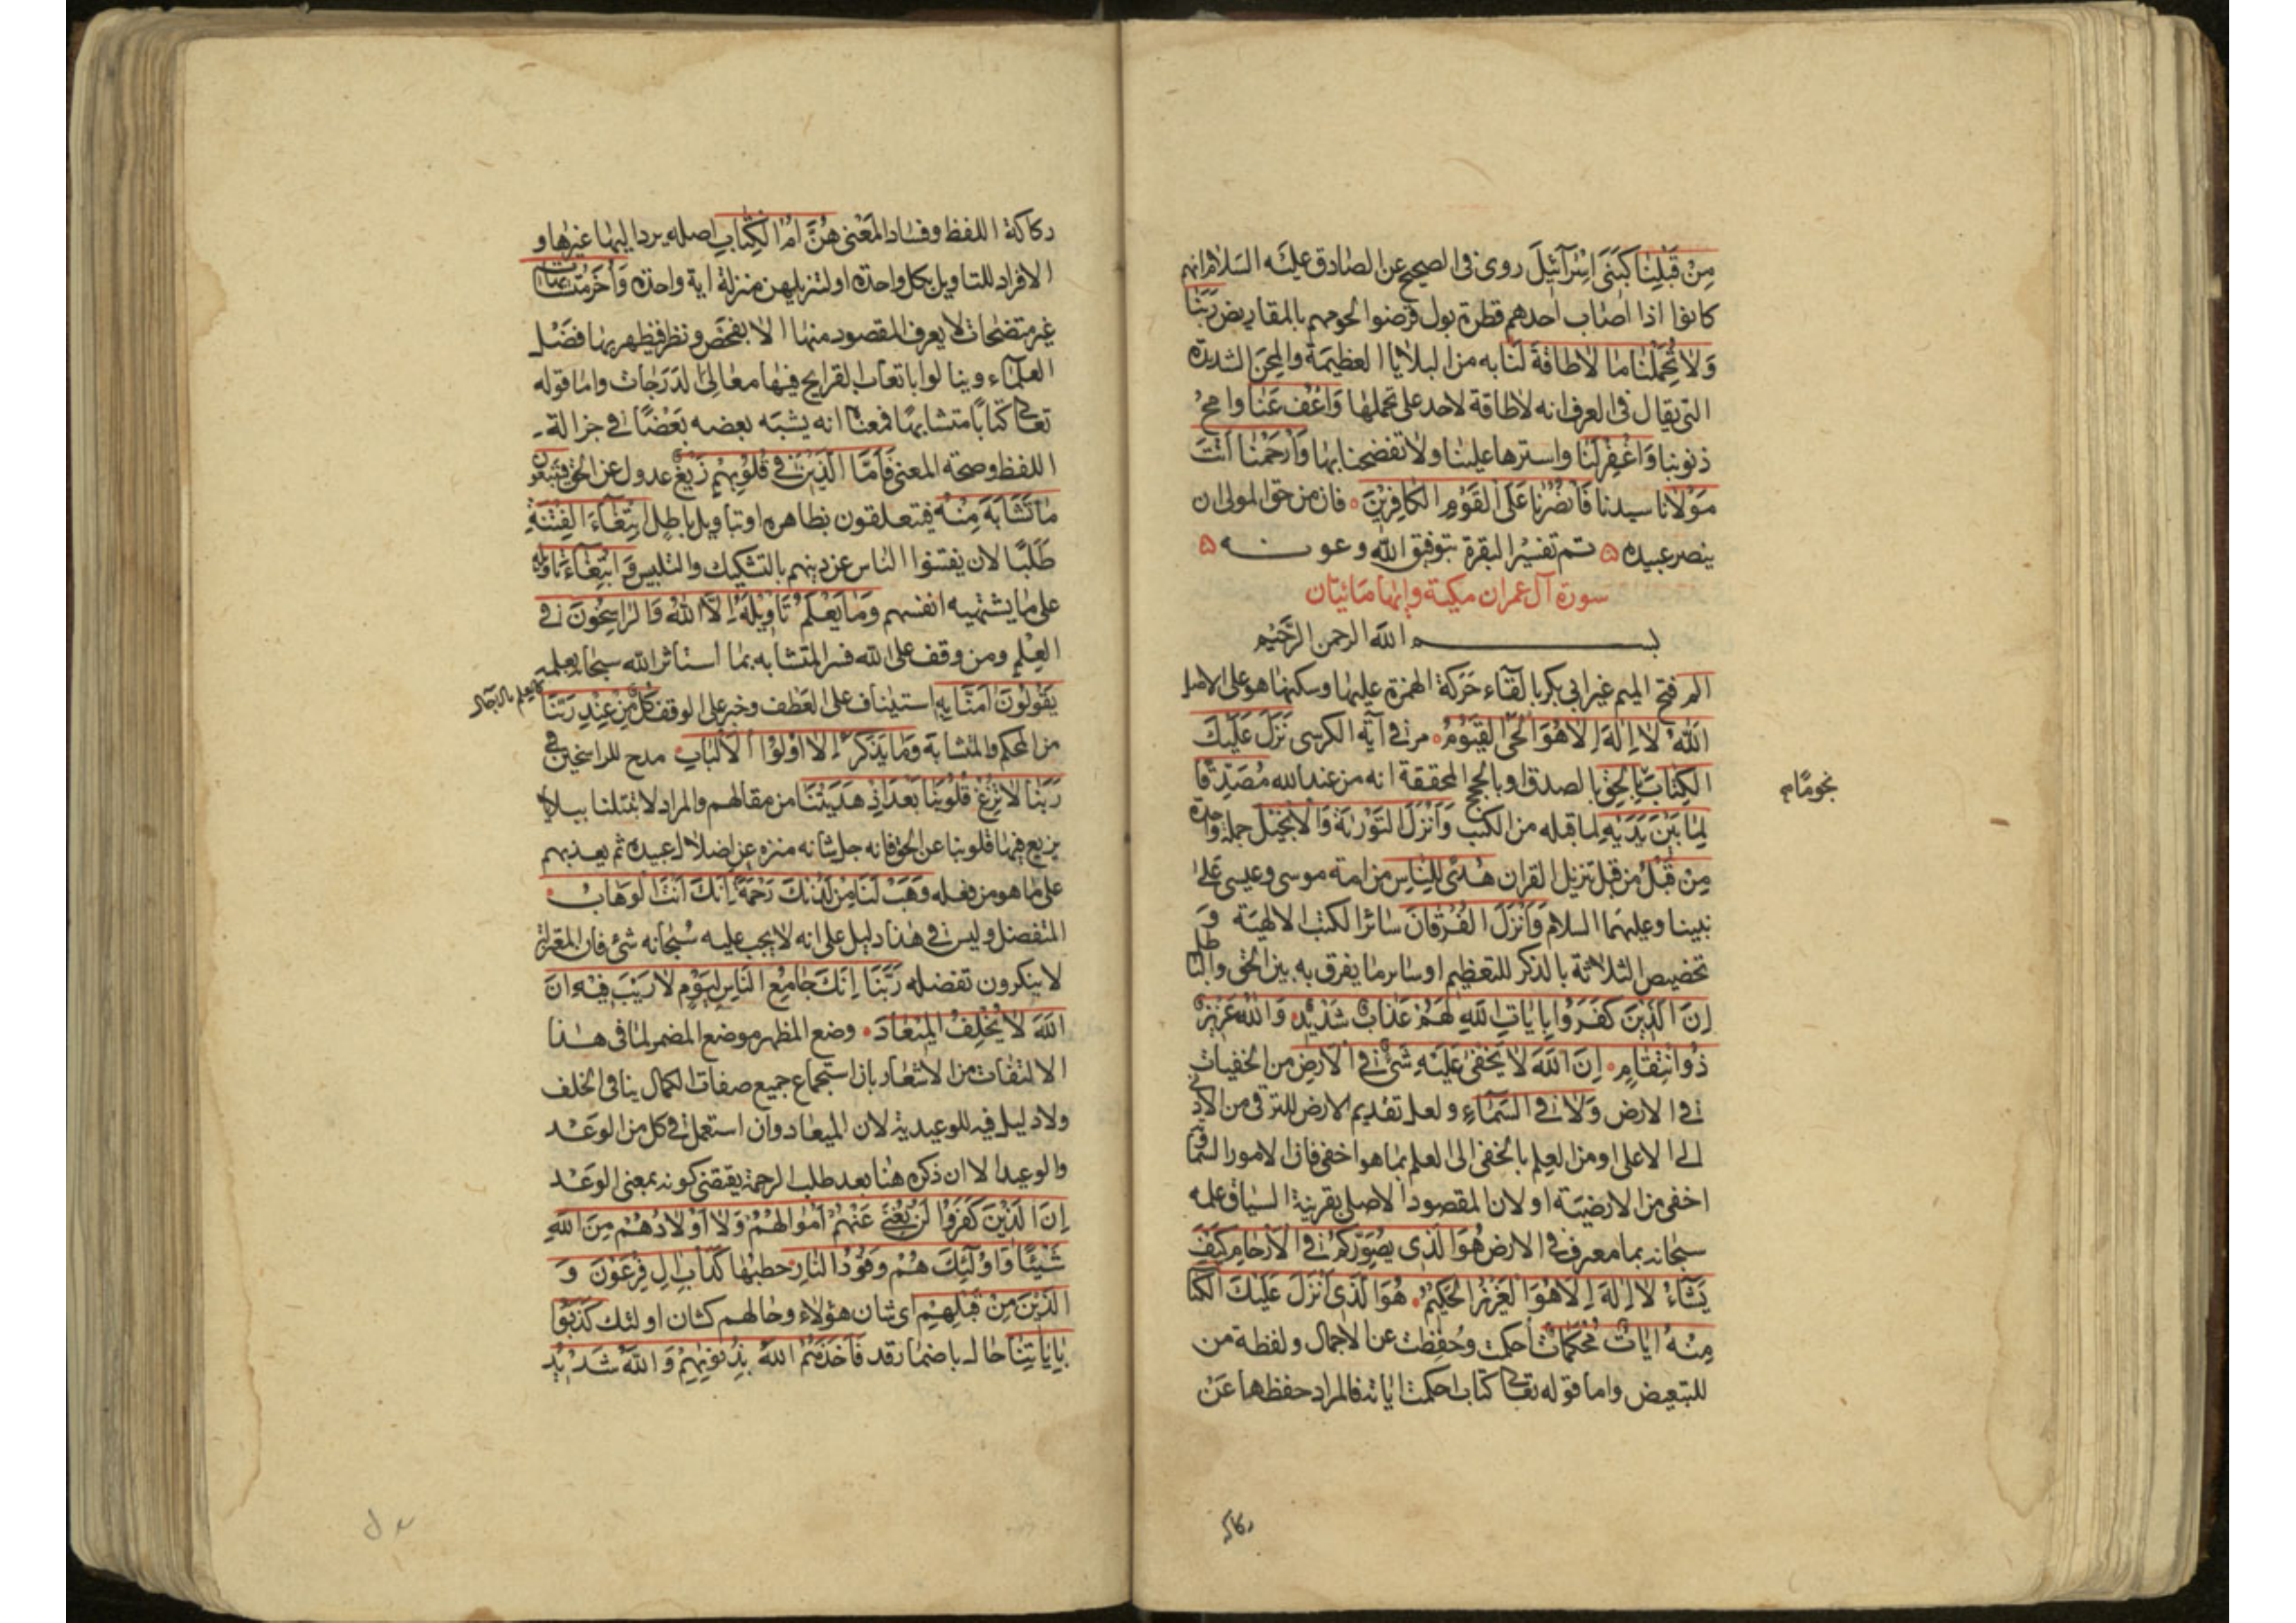 مِنْ قَبْلِنَا كَبَنِى اِسْرَآئيلَ روى فى الصحيح عن الصادق عليه السلام انهم
كانوا اذا اصاب احدهم قطرة بول قرضوا لحومهم بالمقاريض رَبَّنَا
وَلَا تُحَمِّلْنَا مَا لَا طَاقَةَ لَنَا بِه من البلايا العظيمة والمحن الشديدة
التى يقال فى العرف انه لا طاقة لاحد على تحملها وَاعْفُ عَنَّا وامح
ذنوبنا وَاغْفِرْ لَنَا واسترها علينا ولا تفضحنا بها وَارْحَمْنَا اَنْتَ
مَوْلَانَا سيدنا فَانْصُرْنَا عَلَى الْقَوْمِ الْكَافِرِيْنَ فان من حق المولى ان
ينصر عبيده تم تفسير البقرة بتوفيق الله وعونه
سورة آل عمران مكية وايها مائتان
بسم الله الرحمن الرحيم
الم فتح الميم غير ابى بكر بالقاء حركة الهمزة عليها وسكنها هو على الاصل
اَللّٰهُ لَا اِلٰهَ اِلَّا هُوَ الْحَىُّ الْقَيُّوْمُ مر فى آية الكرسى نَزَّلَ عَلَيْكَ
الْكِتَابَ بِالْحَقِّ بالصدق او بالحجج المحققة انه من عند الله مُصَدِّقًا
نجوما
لِمَا بَيْنَ يَدَيْهِ لما قبله من الكتب وَاَنْزَلَ التَّوْرٰيةَ وَالْاِنْجِيْلَ جملة واحدة
مِنْ قَبْلُ من قبل تنزيل القران هُدًى لِلنَّاسِ من امة موسى وعيسى على
نبينا وعليهما السلام وَاَنْزَلَ الْفُرْقَانَ سائر الكتب الالهية و
تخصيص الثلاثة بالذكر للتعظيم او سائر ما يفرق به بين الحق والباطل
اِنَّ الَّذِيْنَ كَفَرُوْا بِاٰيَاتِ اللّٰهِ لَهُمْ عَذَابٌ شَدِيْدٌ وَاللّٰهُ عَزِيْزٌ
ذُو انْتِقَامٍ اِنَّ اللّٰهَ لَا يَخْفٰى عَلَيْهِ شَىْءٌ فِى الْاَرْضِ من الخفيات
فى الارض وَلَا فِى السَّمَاءِ ولعل تقديم الارض للترقى من الادنى
الى الاعلى او من العلم بالخفى الى العلم بما هو اخفى فان الامور السماوية
اخفى من الارضية او لان المقصود الاصلى بقرينة السياق علمه
سبحانه بما معرف فى الارض هُوَ الَّذِى يُصَوِّرُكُمْ فِى الْاَرْحَامِ كَيْفَ
يَشَاءُ لَا اِلٰهَ اِلَّا هُوَ الْعَزِيْزُ الْحَكِيْمُ هُوَ الَّذِى اَنْزَلَ عَلَيْكَ الْكِتَا
مِنْهُ اٰيَاتٌ مُحْكَمَاتٌ احكمت وحفظت عن الاجمال ولفظة من
للتبعيض واما قوله تعالى كتاب احكمت اياته فالمراد حفظها عن
ركاكة
ركاكة اللفظ وفساد المعنى هُنَّ اُمُّ الْكِتَابِ اصله يرد اليها غيرها و
الافراد للتاويل بكل واحدة او لتنزيلهن منزلة اية واحدة وَاُخَرُ مُتَشَابِهَاتٌ
غير متضحات لا يعرف المقصود منها الا بفحص ونظر فيظهر بها فضل
العلماء وينالوا باتعاب القرايح فيها معالى الدرجات واما قوله
تعالى كتابا متشابها فمعناه انه يشبه بعضه بعضا فى جزالة
اللفظ وصحة المعنى فَاَمَّا الَّذِيْنَ فِى قُلُوْبِهِمْ زَيْغٌ عدول عن الحق فَيَتَّبِعُوْنَ
مَا تَشَابَهَ مِنْهُ فيتعلقون بظاهره او بتاويل باطل ابْتِغَاءَ الْفِتْنَةِ
طلبا لان يفتنوا الناس عن دينهم بالتشكيك والتلبيس وَابْتِغَاءَ تَأْوِيْلِهِ
على ما يشتهيه انفسهم وَمَا يَعْلَمُ تَأْوِيْلَهُ اِلَّا اللّٰهُ وَالرَّاسِخُوْنَ فِى
الْعِلْمِ ومن وقف على الله فسر المتشابه بما استاثر الله سبحانه بعلمه
يَقُوْلُوْنَ اٰمَنَّا بِهِ استيناف على العطف وخبر على الوقف كُلٌّ مِنْ عِنْدِ رَبِّنَا
من المحكم والمتشابه وَمَا يَذَّكَّرُ اِلَّا اُولُوا الْاَلْبَابِ مدح للراسخين
رَبَّنَا لَا تُزِغْ قُلُوْبَنَا بَعْدَ اِذْ هَدَيْتَنَا من مقالهم والمراد لا تبتلنا ببلايا
يزيغ فيها قلوبنا عن الحق فانه جل شانه منزه عن اضلال عبيده ثم يعذبهم
على ما هو من فعله وَهَبْ لَنَا مِنْ لَدُنْكَ رَحْمَةً اِنَّكَ اَنْتَ الْوَهَّابُ
المتفضل وليس فى هذا دليل على انه لا يجب عليه سبحانه شئ فان المعتزلة
لا ينكرون تفضله رَبَّنَا اِنَّكَ جَامِعُ النَّاسِ لِيَوْمٍ لَا رَيْبَ فِيْهِ اِنَّ
اللّٰهَ لَا يُخْلِفُ الْمِيْعَادَ وضع المظهر موضع المضمر لما فى هذا
الالتفات من الاشعار بان استجماع جميع صفات الكمال ينافى الخلف
ولا دليل فيه للوعيدية لان الميعاد وان استعمل فى كل من الوعد
والوعيد الا ان ذكره هنا بعد طلب الرحمة يقتضى كونه بمعنى الوعد
اِنَّ الَّذِيْنَ كَفَرُوْا لَنْ تُغْنِىَ عَنْهُمْ اَمْوَالُهُمْ وَلَا اَوْلَادُهُمْ مِنَ اللّٰهِ
شَيْئًا وَاُولٰئِكَ هُمْ وَقُوْدُ النَّارِ حطبها كَدَأْبِ اٰلِ فِرْعَوْنَ وَ
الَّذِيْنَ مِنْ قَبْلِهِمْ اى شان هؤلاء وحالهم كشان اولئك كَذَّبُوْا
بِاٰيَاتِنَا حال باضمار قد فَاَخَذَهُمُ اللّٰهُ بِذُنُوْبِهِمْ وَاللّٰهُ شَدِيْدُ